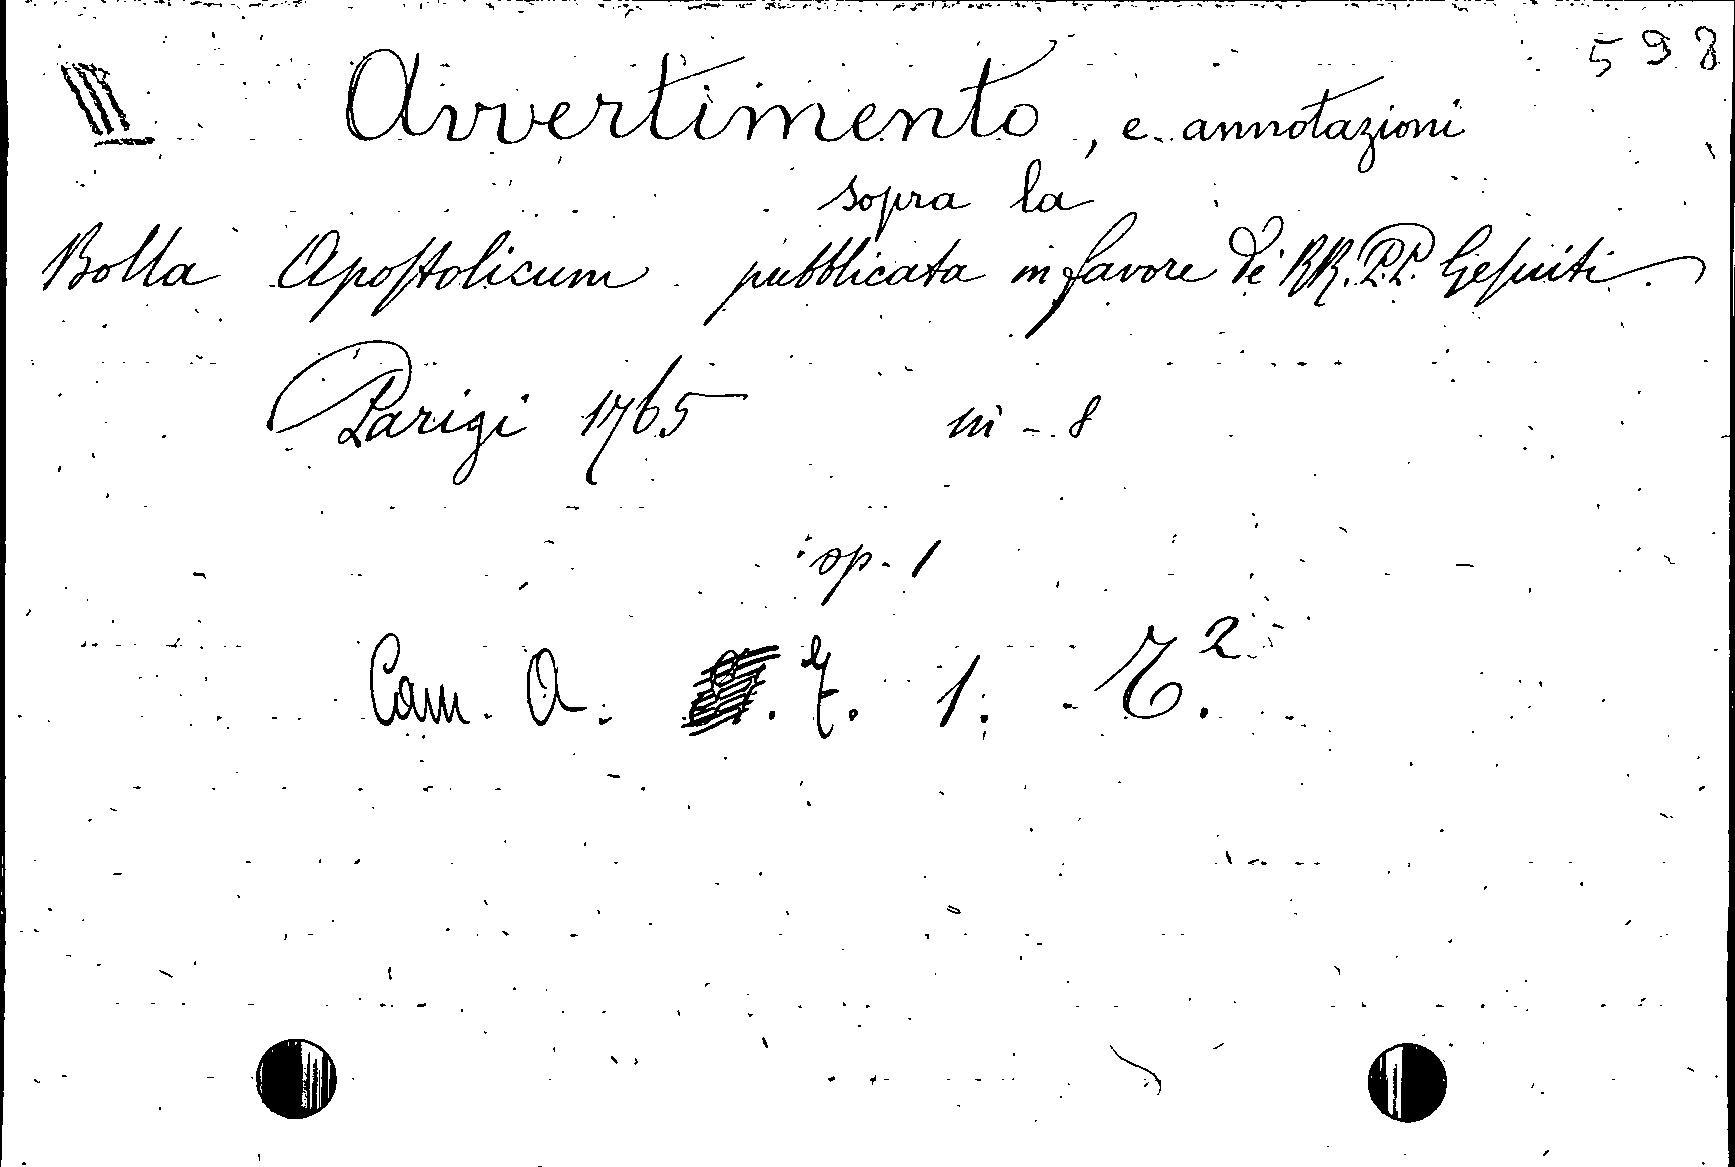 598
Avvertimento, e annotazioni
sopra la
Bolla Apostolicum pubblicata in favore de' RR. P.P. Gesuiti
Parigi 1765 in-8
op. 1
Cam. A. 7. 1.